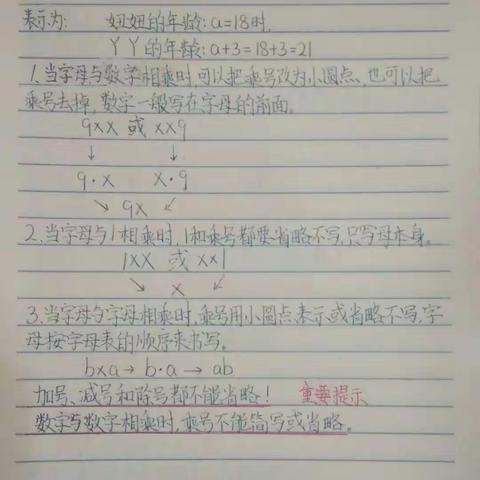 表示为: 妞妞的年龄:a=18时,
丫丫的年龄:a+3=18+3=21
1.当字母与数字相乘时,可以把乘号改为小圆点、也可以把
乘号去掉,数字一般写在字母的前面。
9×x 或 x×9
↓ ↓
9·x x·9
↘ 9x ↙
2.当字母与1相乘时,1和乘号都要省略不写,只写母本身。
1×x 或 x×1
↘ x ↙
3.当字母与字母相乘时,乘号用小圆点表示或省略不写,字
母按字母表的顺序来书写。
b×a→b·a→ab
加号、减号和除号都不能省略! 重要提示
数字与数字相乘时,乘号不能简写或省略。